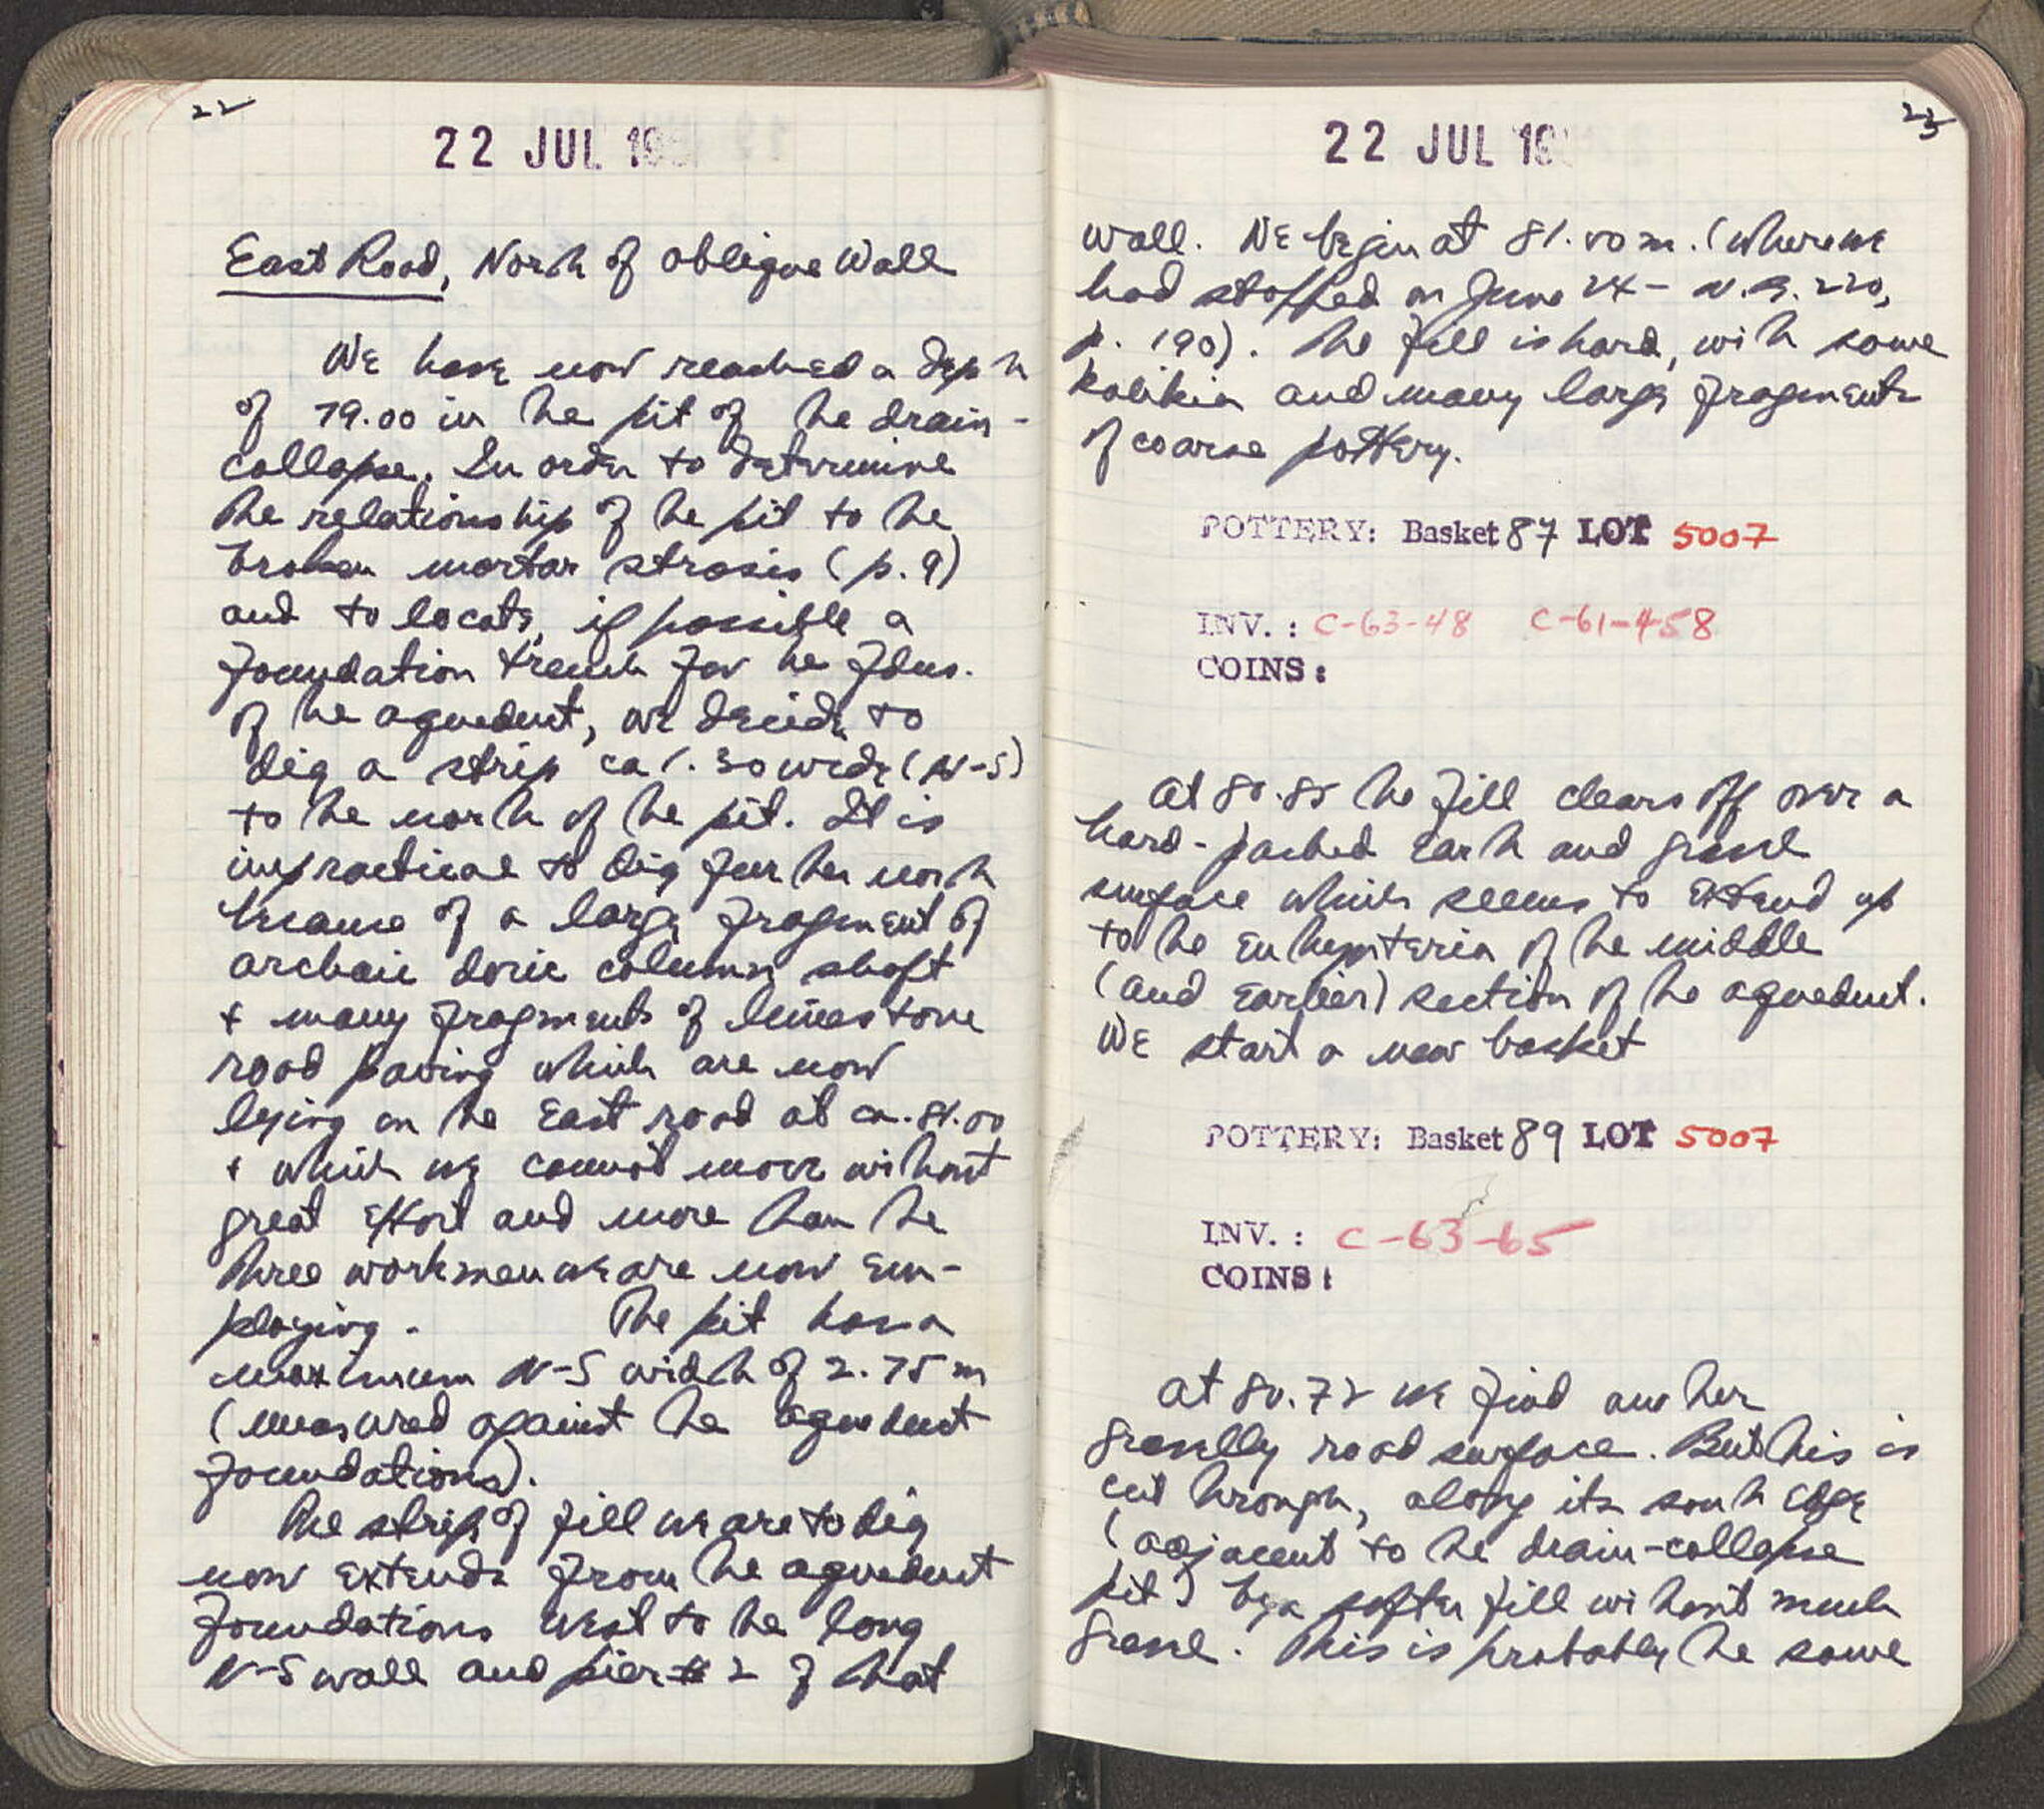 22
22 JUL 19
East Road, North of oblique Wall
We have now reached a depth
of 79.00 in the pit of the drain-
collapse. In order to determine
the relationship of the pit to the
broken mortar strosis (p. 9)
and to locate, if possible a
foundation trench for the fdns.
of the aqueduct, we decide to
dig a strip ca 1.30 wide (N-S)
to the north of the pit. It is
impractical to dig further north
because of a large fragment of
archaic doric column shaft
+ many fragments of limestone
road paving which are now
lying on the East road at ca. 81.00
+ which we cannot move without
great effort and more than the
three workmen we are now em-
ploying. The pit has a
maximum N-S width of 2.75 m
(measured against the aqueduct
foundations).
The strip of fill we are to dig
now extends from the aqueduct
foundations west to the long
N-S wall and pier # 2 of that
23
22 JUL 19
wall. We begin at 81.00 m. (where we
had stopped on June 24 - N.B. 220,
p. 190). The fill is hard, with some
kalikia and many large fragments
of coarse pottery.
POTTERY: Basket 87 LOT 5007
INV. : C-63-48 C-61-458
COINS:
At 80.85 the fill clears off over a
hard-packed earth and gravel
surface which seems to extend up
to the euthynteria of the middle
(and earlier) section of the aqueduct.
We start a new basket
POTTERY: Basket 89 LOT 5007
INV. : C-63-65
COINS:
At 80.72 we find another
gravelly road surface. But this is
cut through, along its south edge
(adjacent to the drain-collapse
pit) by a softer fill without much
gravel. This is probably the same